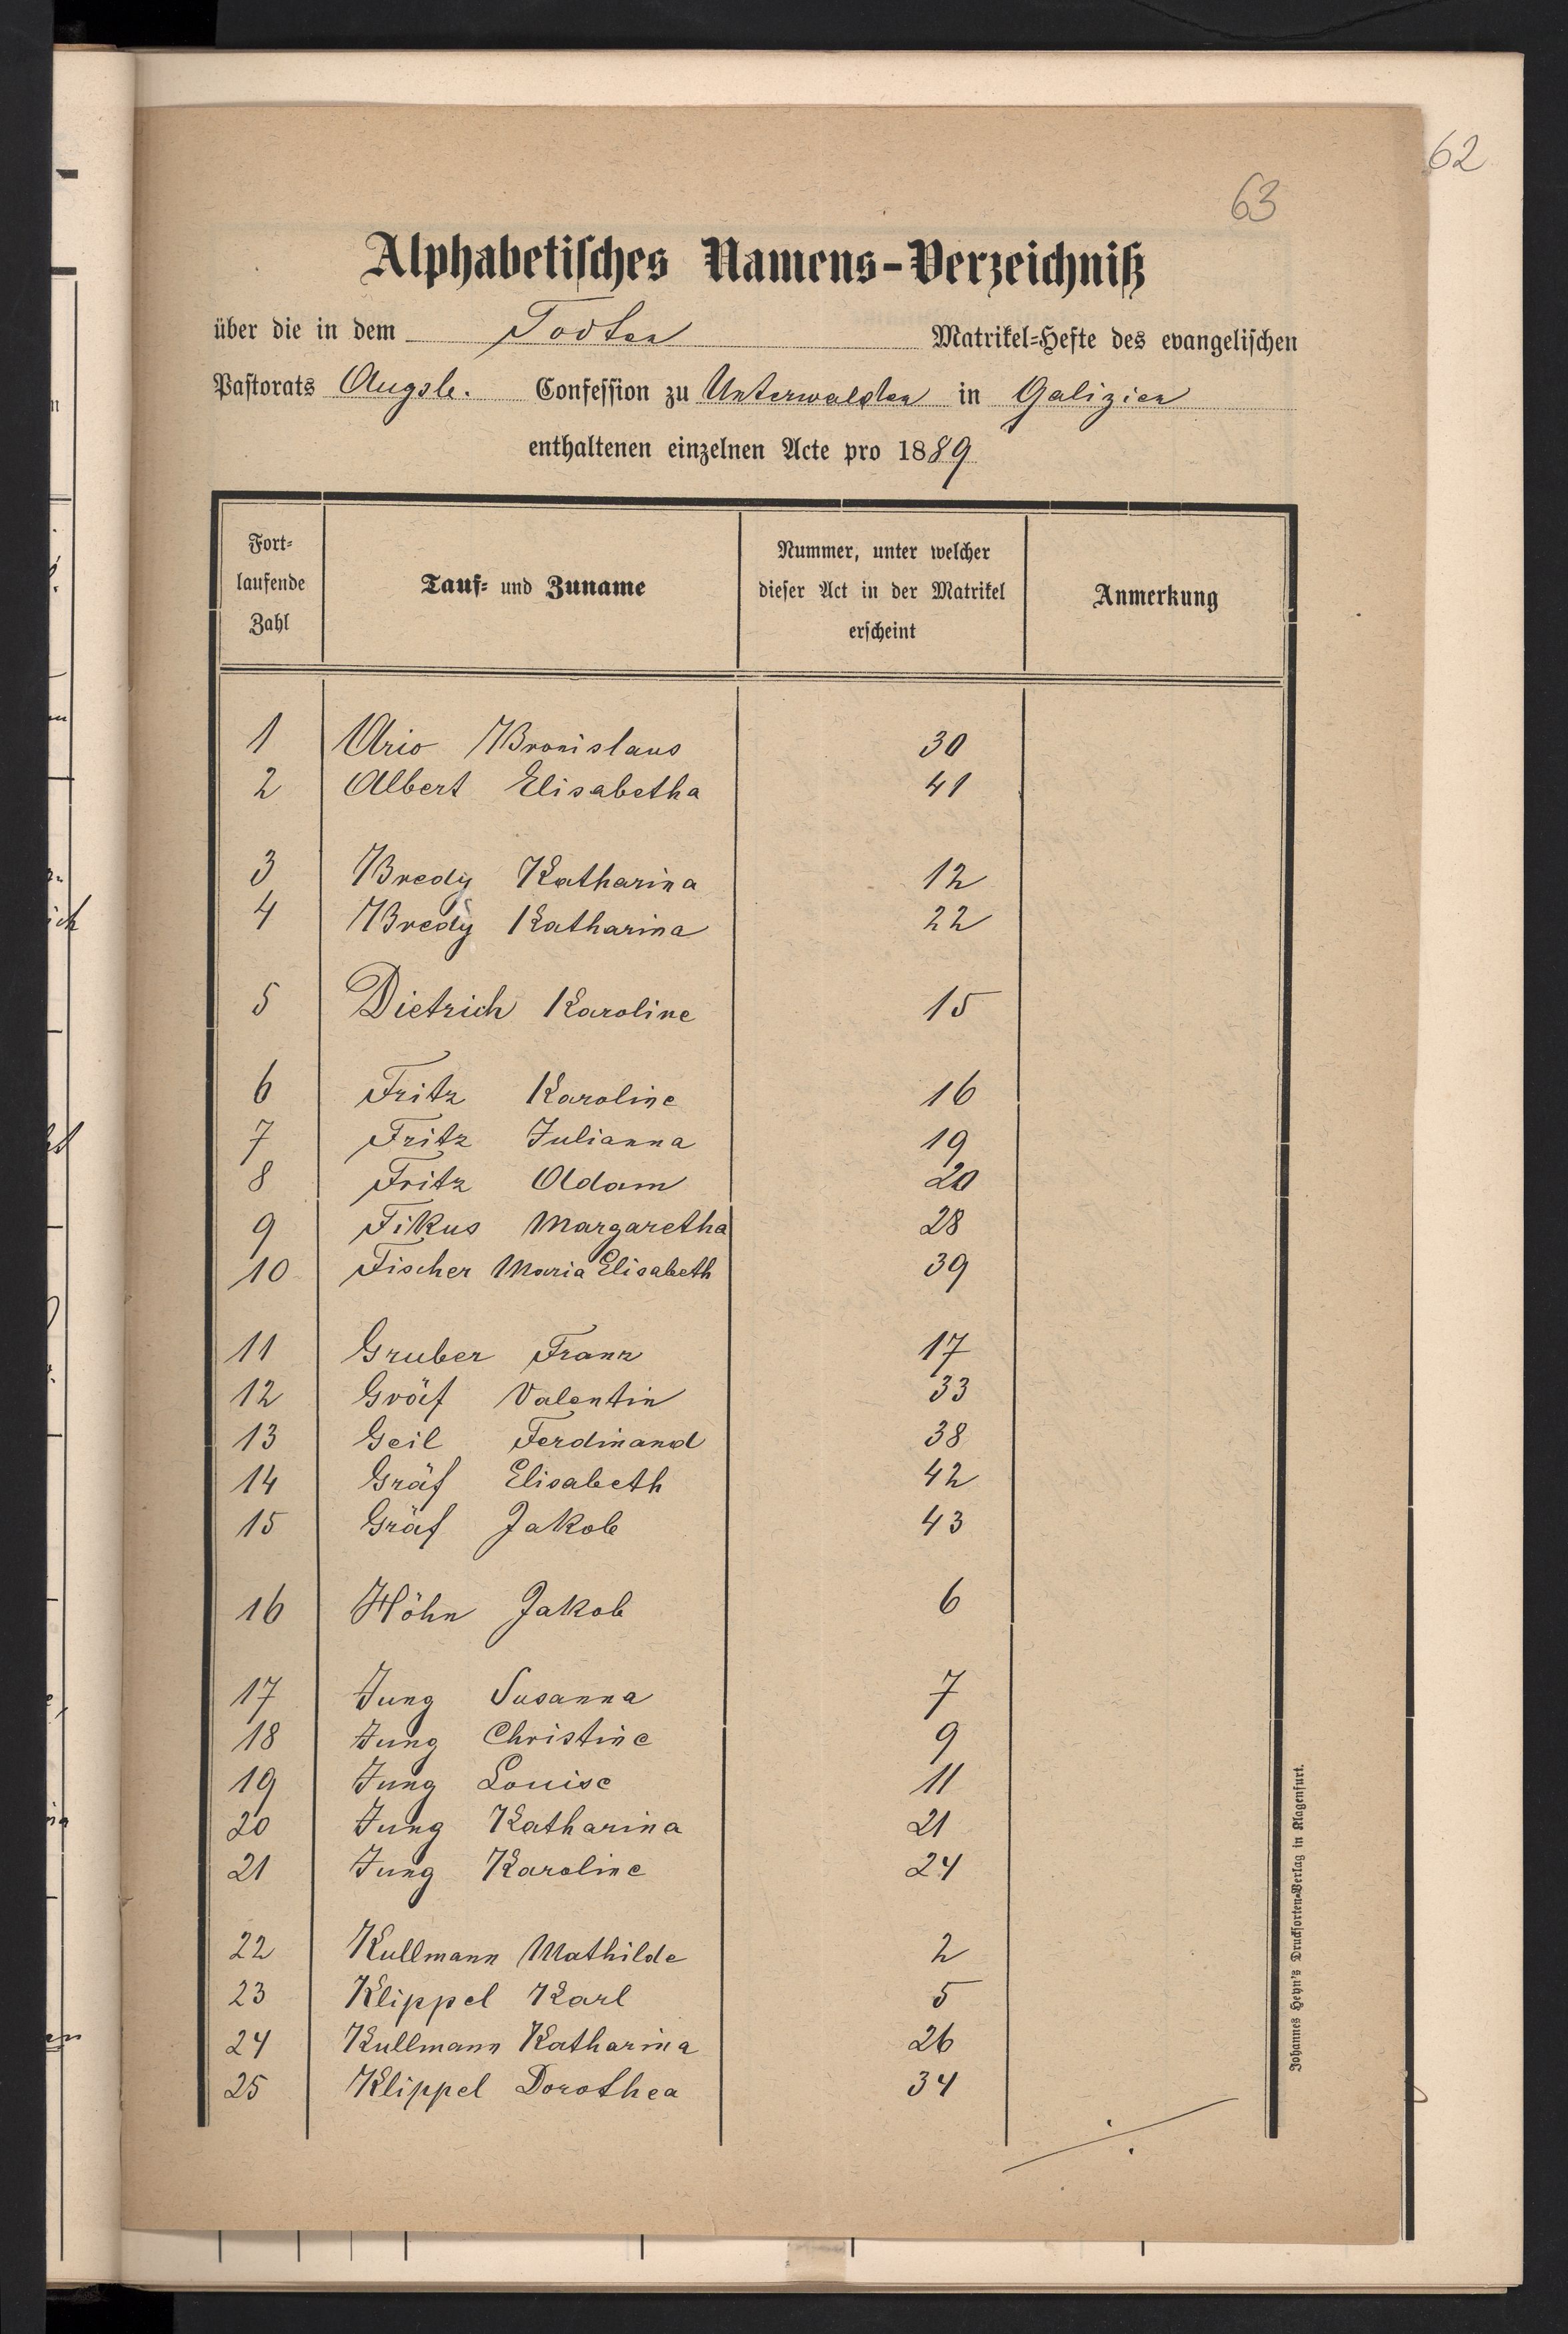 62
63
Alphabetisches Namens-Verzeichniß
über die in dem Todten Matrikel-Hefte des evangelischen
Pastorats Augsb. Confession zu Unterwalden in Galizien
enthaltenen einzelnen Acte pro 1889
Fort-laufende Zahl Tauf- und Zuname Nummer, unter welcher dieser Act in der Matrikel erscheint Anmerkung
1 Urio Bronislaus 30
2 Albert Elisabetha 41
3 Bredy Katharina 12
4 Bredy Katharina 22
5 Dietrich Karoline 15
6 Fritz Karoline 16
7 Fritz Julianna 19
8 Fritz Adam 20
9 Fikus Margaretha 28
10 Fischer Maria Elisabeth 39
11 Gruber Franz 17
12 Gräf Valentin 33
13 Geil Ferdinand 38
14 Gräf Elisabeth 42
15 Gräf Jakob 43
16 Höhn Jakob 6
17 Jung Susanna 7
18 Jung Christine 9
19 Jung Louise 11
20 Jung Katharina 21
21 Jung Karoline 24
22 Kullmann Mathilde 2
23 Klippel Karl 5
24 Kullmann Katharina 26
25 Klippel Dorothea 34
Johannes Heyn's Drucksorten-Verlag in Klagenfurt.